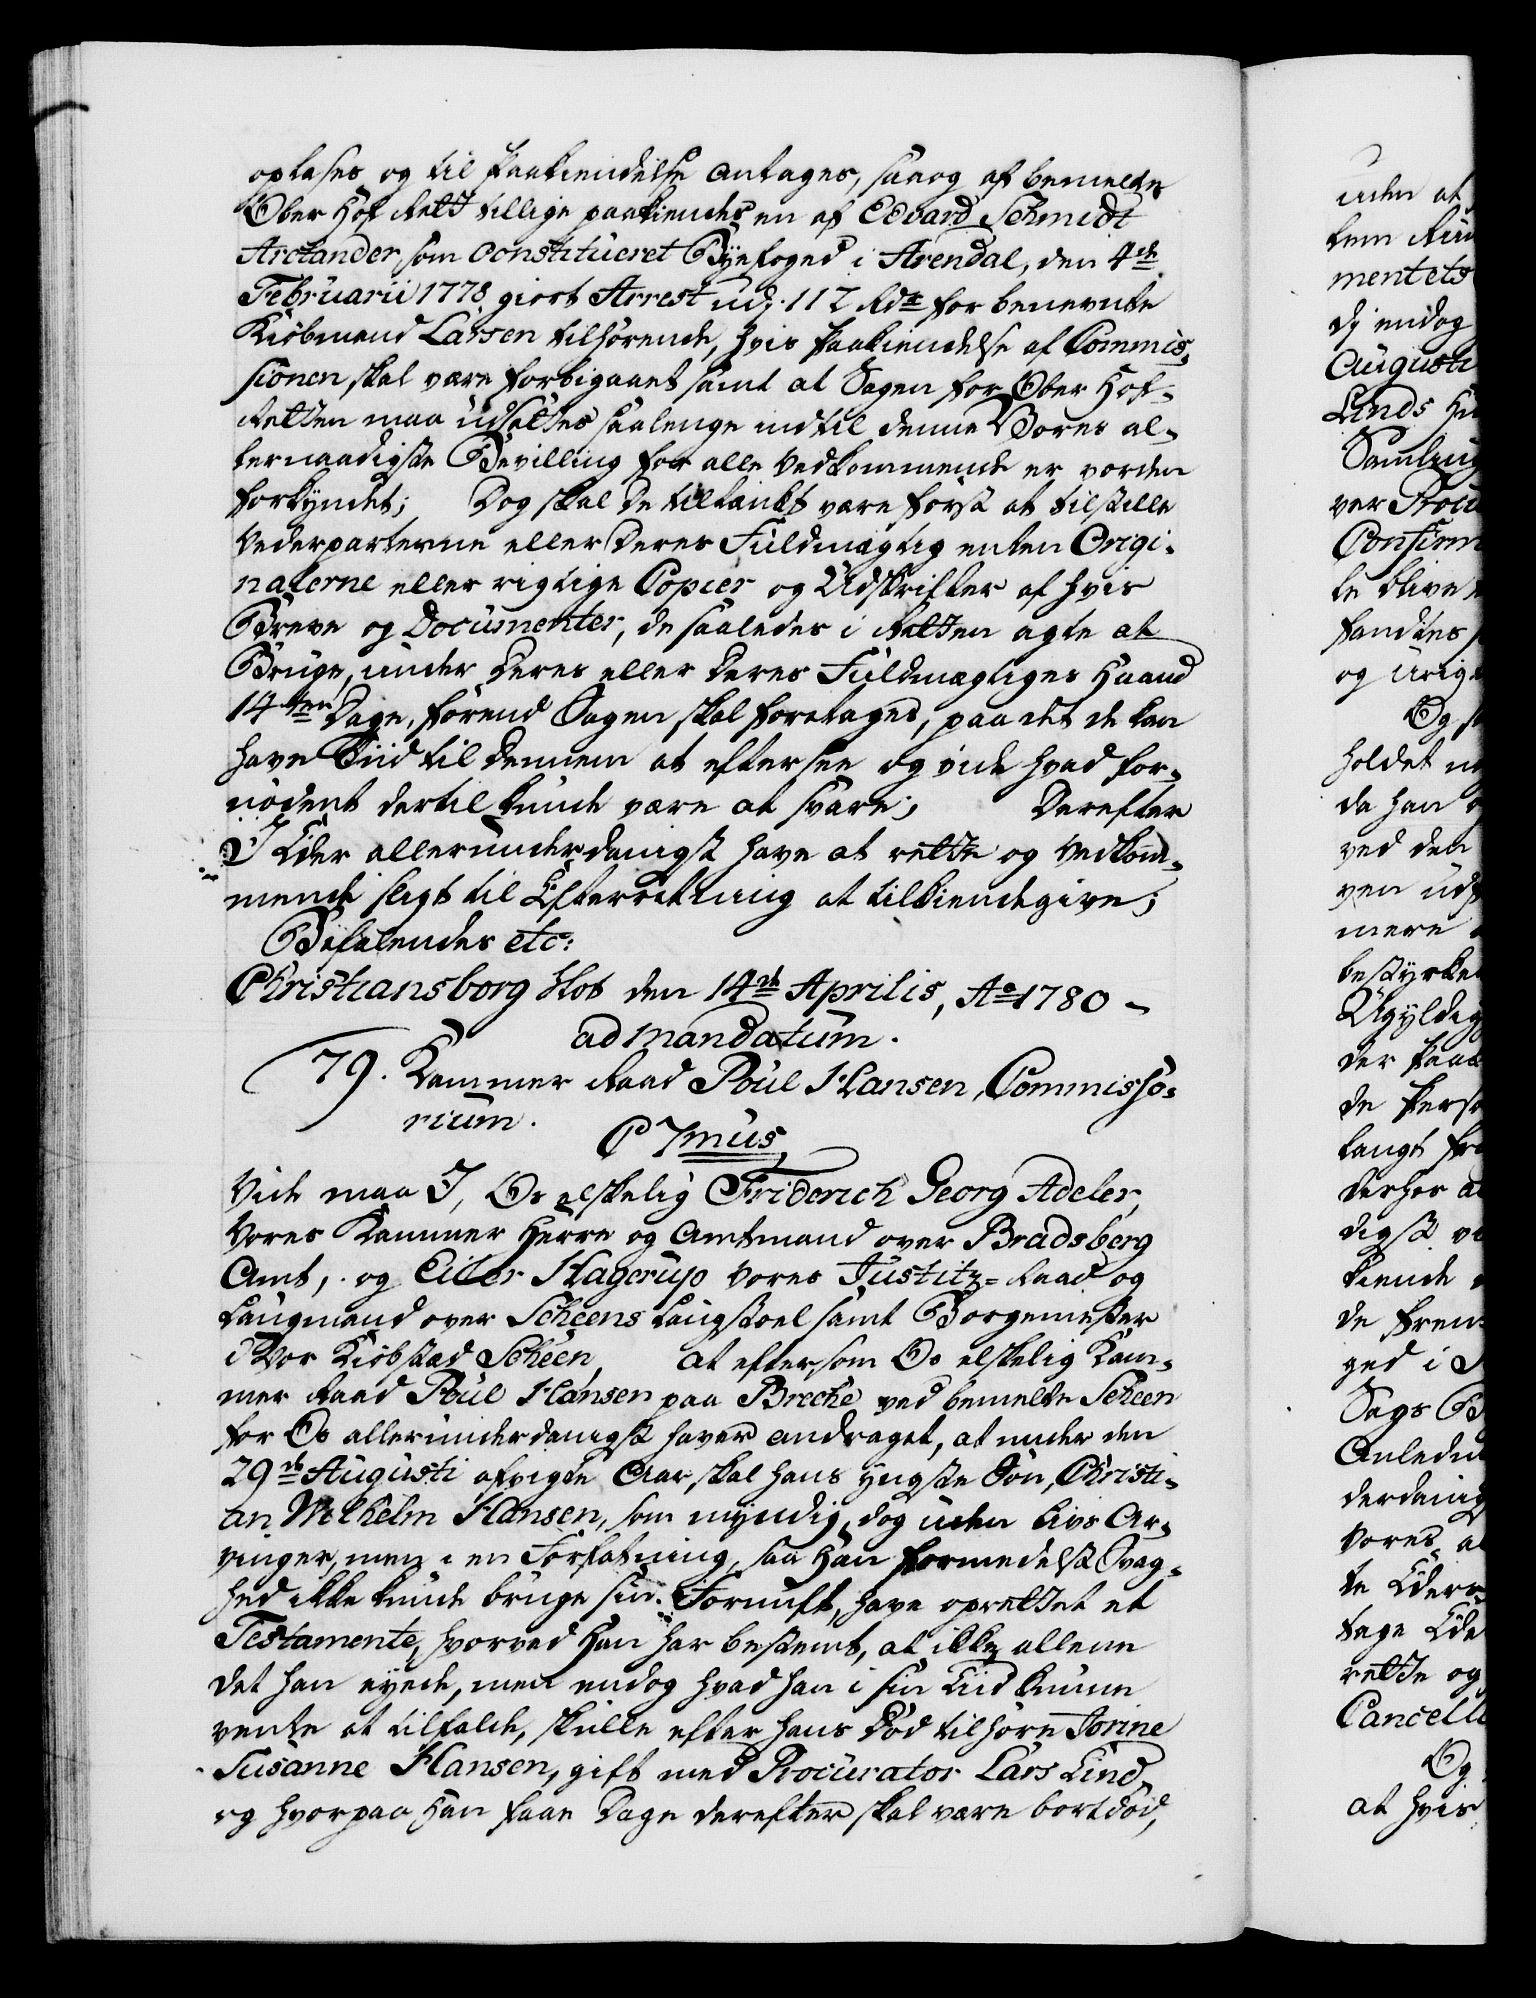 optages og til Paakiendelse antages, saaog af bemeldte
Ober Hof Rett tillige paakiendes en af Edvard Schmidt
Arctander som Constitueret Byefoged i Arendal, den 4de
Februarii 1778 giort Arrest udj 112 Rdr for benevnte
Kiøbmand Larsen tilhørende, hvis Paakiendelse af Commis-
sionen skal være forbigaaet samt at Sagen for Ober Hof-
Retten maa udsættes saalenge indtil denne Vores al-
lernaadigste Bevilling for alle Vedkommende er vorden
forkyndet; Dog skal de tiltænkt være først at tilstille
Vederparterne eller Deres Fuldmægtig enten Origi-
nalerne eller rigtige Copier og Udskrifter af hvis
Breve og Documenter, de saaledes i Retten agte at
Bruge, under Deres eller Deres Fuldmægtiges Haand
14ten Dage, førend Sagen skal foretages, paa det de kan
have Tiid til Dennem at eftersee og vide hvad for-
nødent dertil kunde være at svare; Derefter
I Eder allerunderdanigst have at rette og Vedkom-
mende sligt til Efterretning at tilkiendegive;
Befalendes etc:
Christiansborg Slot den 14de Aprilis, Ao 1780 -
ad mandatum.
79. Kammer Raad Poul Hansen, Commisso-
rium.
C 7mus,
Viide maa I, Os elskelig Friderich Georg Adeler,
Vores Kammer Herre og Amtmand over Bradsberg
Amt, og Eiler Hagerup Vores Justitz-Raad og
Laugmand over Scheens Laugstoel samt Borgemester
i Vor Kiøbstæd Scheen, at eftersom Os elskelig Kam-
mer Raad Poul Hansen paa Breche ved bemeldte Scheen
for Os allerunderdanigst haver andraget, at under den
29de Augusti afvigte Aar skal hans yngste Søn, Christi-
an Wilhelm Hansen, som myndig, dog uden Livs Ar-
vinger, men i en Forfatning, saa Han formedelst Svag-
hed ikke kunde bruge sin Fornuft, have oprettet et
Testamente, hvorved Han har bestemt, at ikke allene
det han eyede, men endog hvad han i sin Tiid kunne
vente at tilfalde, skulle efter hans Død tilhøre Sorine
Susanne Hansen, gift med Procurator Lars Lind,
og hvorpaa Han faae Dage derefter skal være bortdød,
uden at
mentets
dj endog
Augusti
Linds
Samling
ver Procu
Confirm
te blive
fandtes
og urig
Og
holdet
da han
ved den
ven ud
mere
bestyrke
Ugyldig
der paa
de Perso
langt fra
derhos at
digst
kiende
de frem
ged i
Sags
Anledn
derdanig
Vores
te Eder
tage Ede
rette og
Cancelli
Og
at hvis